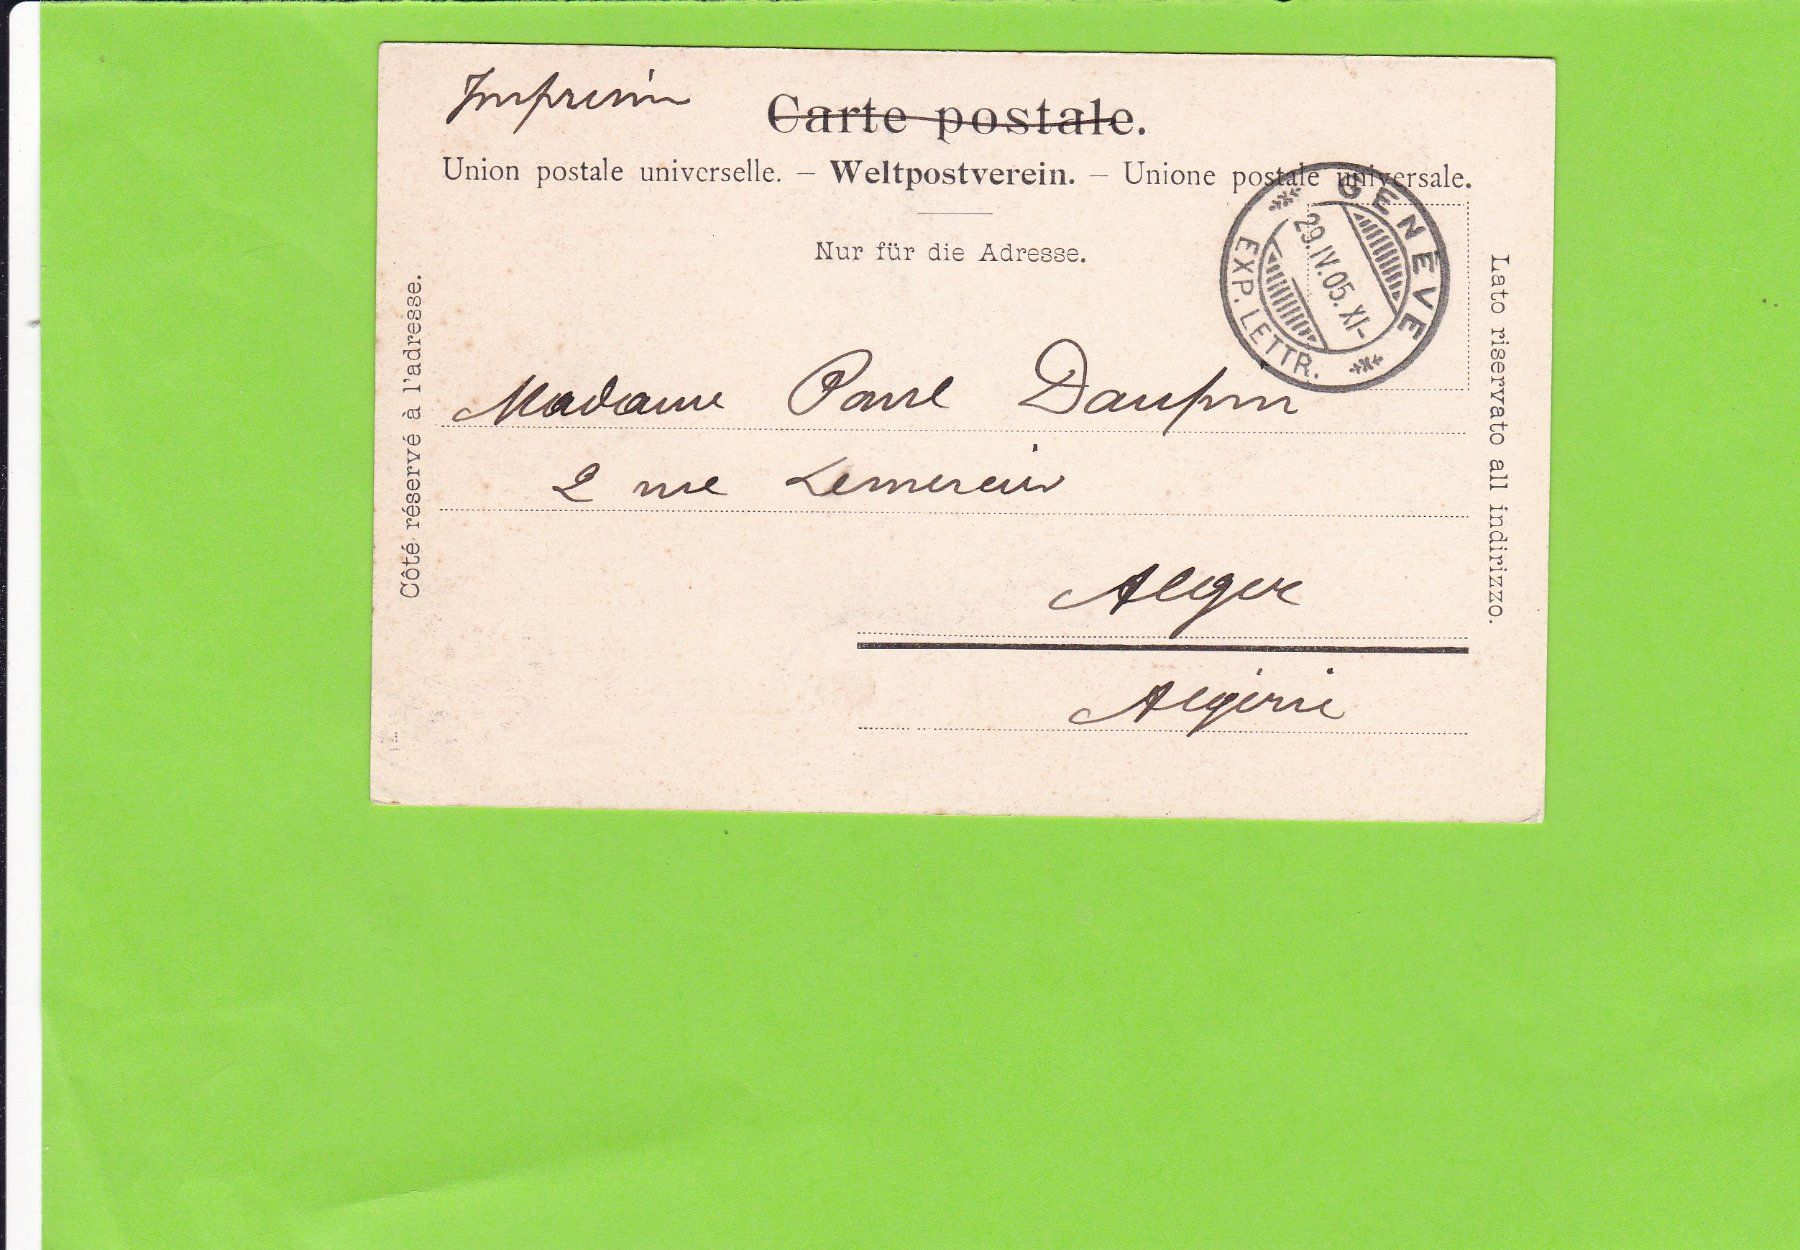 Imprimé
Carte postale.
Union postale universelle. – Weltpostverein. – Unione postale universale.
Nur für die Adresse.
GENÈVE
29.IV.05.XI-
EXP. LETTR.
Côté réservé à l'adresse.
Lato riservato all indirizzo.
Madame Paul
2 rue
Alger
Algérie